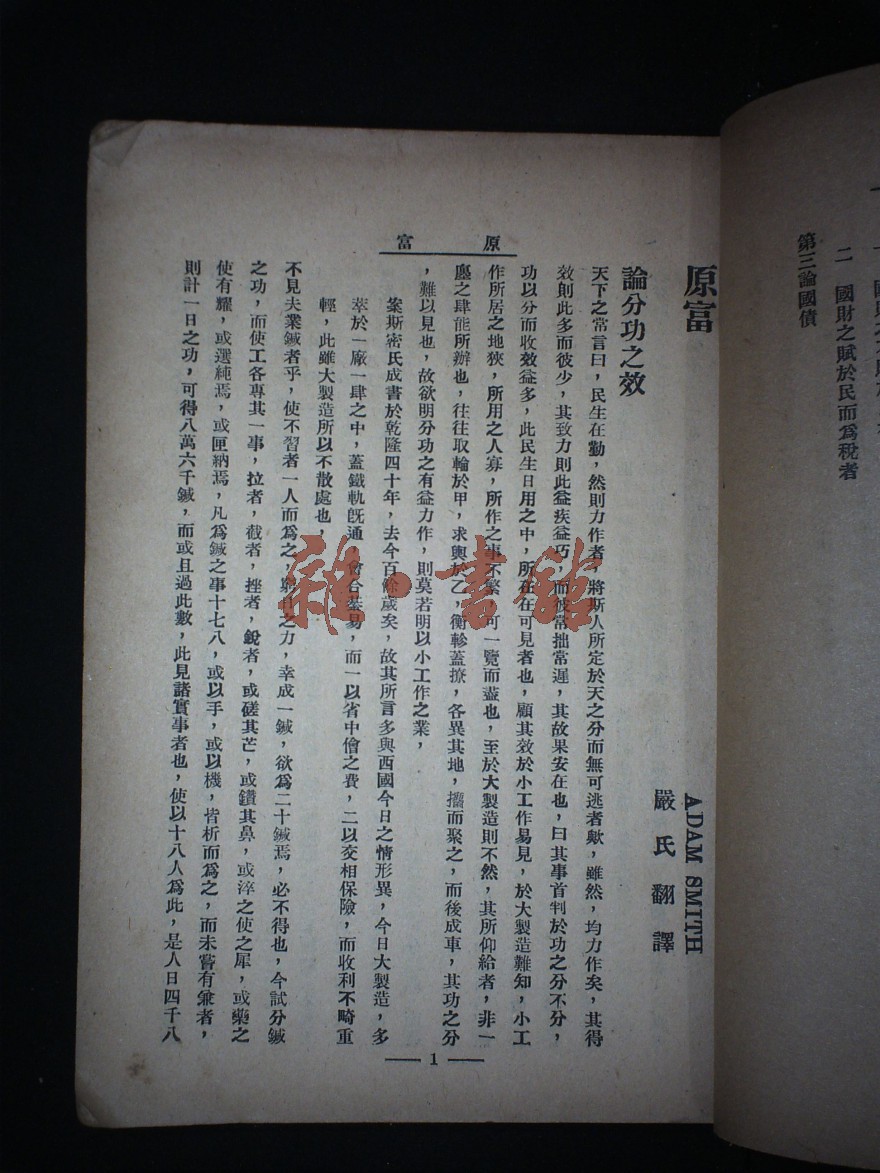 一
二　國財之賦於民而爲稅者
第三論國債
原富
原富
ADAM SMITH
嚴氏翻譯
論分功之效
天下之常言曰，民生在勤，然則力作者，將斯人所定於天之分而無可逃者歟，雖然，均力作矣，其得
效則此多而彼少，其致力則此益疾益巧，而彼常拙常遲，其故果安在也，曰其事首判於功之分不分，
功以分而收效益多，此民生日用之中，所在在可見者也，顧其效於小工作易見，於大製造難知，小工
作所居之地狹，所用之人寡，所作之事不繁，可一覽而盡也，至於大製造則不然，其所仰給者，非一
廛之肆能所辦也，往往取輪於甲，求輿於乙，衡軫蓋橑，各異其地，攟而聚之，而後成車，其功之分
，難以見也，故欲明分功之有益力作，則莫若明以小工作之業，
案斯密氏成書於乾隆四十年，去今百餘歲矣，故其所言多與西國今日之情形異，今日大製造，多
萃於一廠一肆之中，蓋鐵軌旣通，會合綦易，而一以省中儈之費，二以交相保險，而收利不畸重
輕，此雖大製造所以不散處也，
不見夫業鍼者乎，使不習者一人而爲之，窮日之力，幸成一鍼，欲爲二十鍼焉，必不得也，今試分鍼
之功，而使工各專其一事，拉者，截者，挫者，銳者，或磋其芒，或鑽其鼻，或淬之使之犀，或藥之
使有耀，或選純焉，或匣納焉，凡爲鍼之事十七八，或以手，或以機，皆析而爲之，而未嘗有兼者，
則計一日之功，可得八萬六千鍼，而或且過此數，此見諸實事者也，使以十八人爲此，是人日四千八
— 1 —
雜·書館